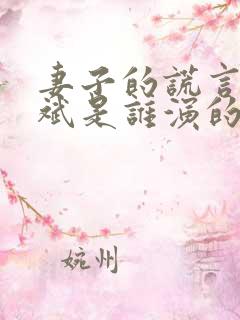 妻子的謊言
斌是誰演的
婉州